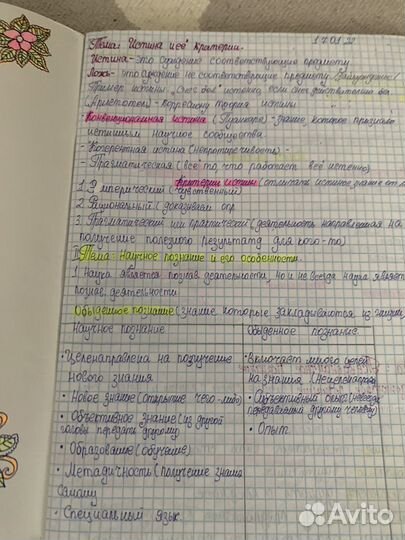 Тема: Истина и её критерии. 17.01.22
Истина - это суждение соответствующие предмету
Ложь - это суждение не соответствующие предмету
Пример истины „Снег бел" истенна, если снег действительно бел
(Аристотель) - корреспон теория истины
- Конвенциональная истина (Пуанкаре) - знание, которое признаёт
истинным научное сообщество
- Когерентная истина (непротиречивость) -
- Прагматическая (всё то, что работает всё истенно)
Критерии истины (отличать истинное знание от
1. Эмперический (чувственный)
2. Рациональный (доказываем опр
3. Прагматический или практический (деятельность направленная на
получение полезно результата для кого-то)
Тема: научное познание и его особенности.
1. Наука является познав. деятельностью, но и не всегда наука являет
познав. деятельности
Обыденное познание (знание которые закладываются из жизни,
Научное познание Обыденное познание.
• Целенаправлена на получение
нового знания
• Новое знание (открытие чего-либо)
• Объективное знание (из другой
головы передать другому
• Образование (обучение)
• Методичность (получение знание
самому
• Специальный язык.
• Включает много целей
на знания (Нецеленаправ
• Субъективный опыт (невсегда
передаваемый другому человеку)
• Опыт.
Avito